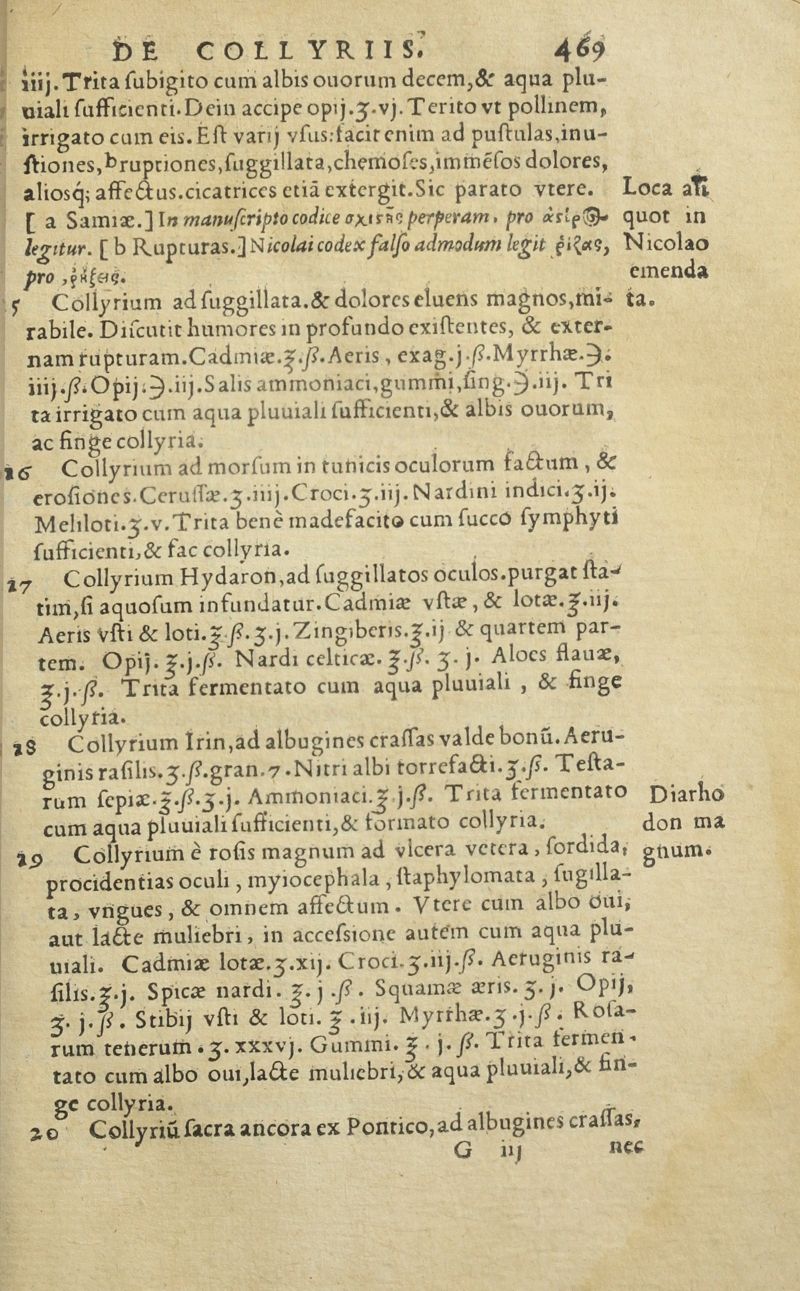 DE COLLYRIIS. 469
iiij. Trita ſubigito cum albis ouorum decem, & aqua plu-
uiali ſufficienti. Dein accipe opij.ʒ.vj. Terito vt pollinem,
irrigato cum eis. Eſt varij vſus: facit enim ad puſtulas, inu-
ſtiones, ᵇruptiones, ſuggillata, chemoſes, immēſos dolores,
aliosq; affectus. cicatrices etiã extergit. Sic parato vtere. Loca ali
[ a Samiæ.] In manuſcripto codice perperam, pro quot in
legitur. [ b Rupturas.] Nicolai codex falſo admodum legit ῥίζας, Nicolao
pro ῥήξεις. emenda
Collyrium ad ſuggillata. & dolores eluens magnos, mi- ta.
rabile. Diſcutit humores in profundo exiſtentes, & exter-
nam rupturam. Cadmiæ.℥.ß. Aeris, exag. j.ß. Myrrhæ.℈.
iiij.ß. Opij.℈.iij. Salis ammoniaci, gummi, ſing.℈.iij. Tri
ta irrigato cum aqua pluuiali ſufficienti, & albis ouorum,
ac finge collyria.
16 Collyrium ad morſum in tunicis oculorum factum, &
eroſiones. Ceruſſæ.ʒ.iiij. Croci.ʒ.iij. Nardini indici.ʒ.ij.
Meliloti.ʒ.v. Trita benè madefacito cum ſucco ſymphyti
ſufficienti, & fac collyria.
17 Collyrium Hydaron, ad ſuggillatos oculos. purgat ſta-
tim, ſi aquoſum infundatur. Cadmiæ vſtæ, & lotæ.℥.iij.
Aeris vſti & loti.℥.ß.ʒ.j. Zingiberis.℥.ij & quartem par-
tem. Opij. ℥.j.ß. Nardi celticæ. ℥.ß. ʒ. j. Aloes flauæ,
℥.j.ß. Trita fermentato cum aqua pluuiali, & finge
collyria.
18 Collyrium Irin, ad albugines craſſas valde bonū. Aeru-
ginis raſilis.ʒ.ß.gran.7. Nitri albi torrefacti.ʒ.ß. Teſta-
rum ſepiæ.℥.ß.ʒ.j. Ammoniaci.℥.j.ß. Trita fermentato Diarho
cum aqua pluuiali ſufficienti, & formato collyria. don ma
19 Collyrium è roſis magnum ad vlcera vetera, ſordida, gnum.
procidentias oculi, myiocephala, ſtaphylomata, ſugilla-
ta, vngues, & omnem affectum. Vtere cum albo oui,
aut lacte muliebri, in acceſsione autem cum aqua plu-
uiali. Cadmiæ lotæ.ʒ.xij. Croci.ʒ.iij.ß. Aeruginis ra-
ſilis.℥.j. Spicæ nardi. ℥. j .ß. Squamæ æris. ʒ. j. Opij,
ʒ. j. ß. Stibij vſti & loti. ℥ .iij. Myrrhæ.ʒ.j.ß. Roſa-
rum tenerum .ʒ. xxxvj. Gummi. ℥. j. ß. Trita fermen-
tato cum albo oui, lacte muliebri, & aqua pluuiali, & fin-
ge collyria.
20 Collyriū ſacra ancora ex Pontico, ad albugines craſſas,
G iij nec